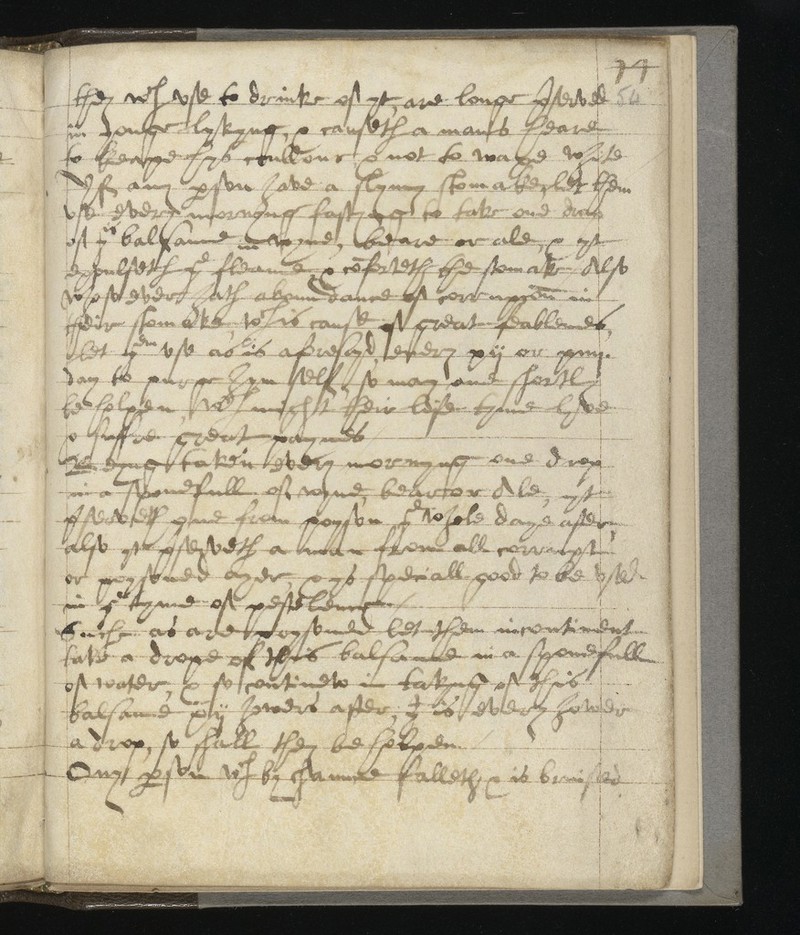 44
54
they wch vse to drinke of yt, are longe pserved
in yonge lykyng, & causeth a mans heare
to keepe hys coullour & not to waxe white
Yf any pson have a slymy stomake, let them
vse every mornyng fastyng to take one drop
of ye balsame in wyne, beare or ale, & yt
expulseth ye fleame, & coforteth the stomake. Also
whosoever hath abundance of corrupcon in
their stomake, wch is cause of great feablenes,
let ym vse as is aforesayd, every xij or
day to purge hym self, so may one shortly
be holpen, wch might their life tyme lyve
& suffre great paynes
Beyng taken every mornyng one drop
in a sponefull of wyne, beare or Ale, yt
pserveth one from poyson ye whole daye after,
also yt pserveth a man from all corrupt
or poysoned ayer, & ys speciall good to be vsed
in ye tyme of pestelence
Suche as are poysoned let them incontinent
take a drope of this balsame in a sponefull
of water, & so continew in takyng of this
balsame xij howers after, yt is every hower
a drop, so shall they be holpen
Any pson wch by chaunce falleth, & is brused